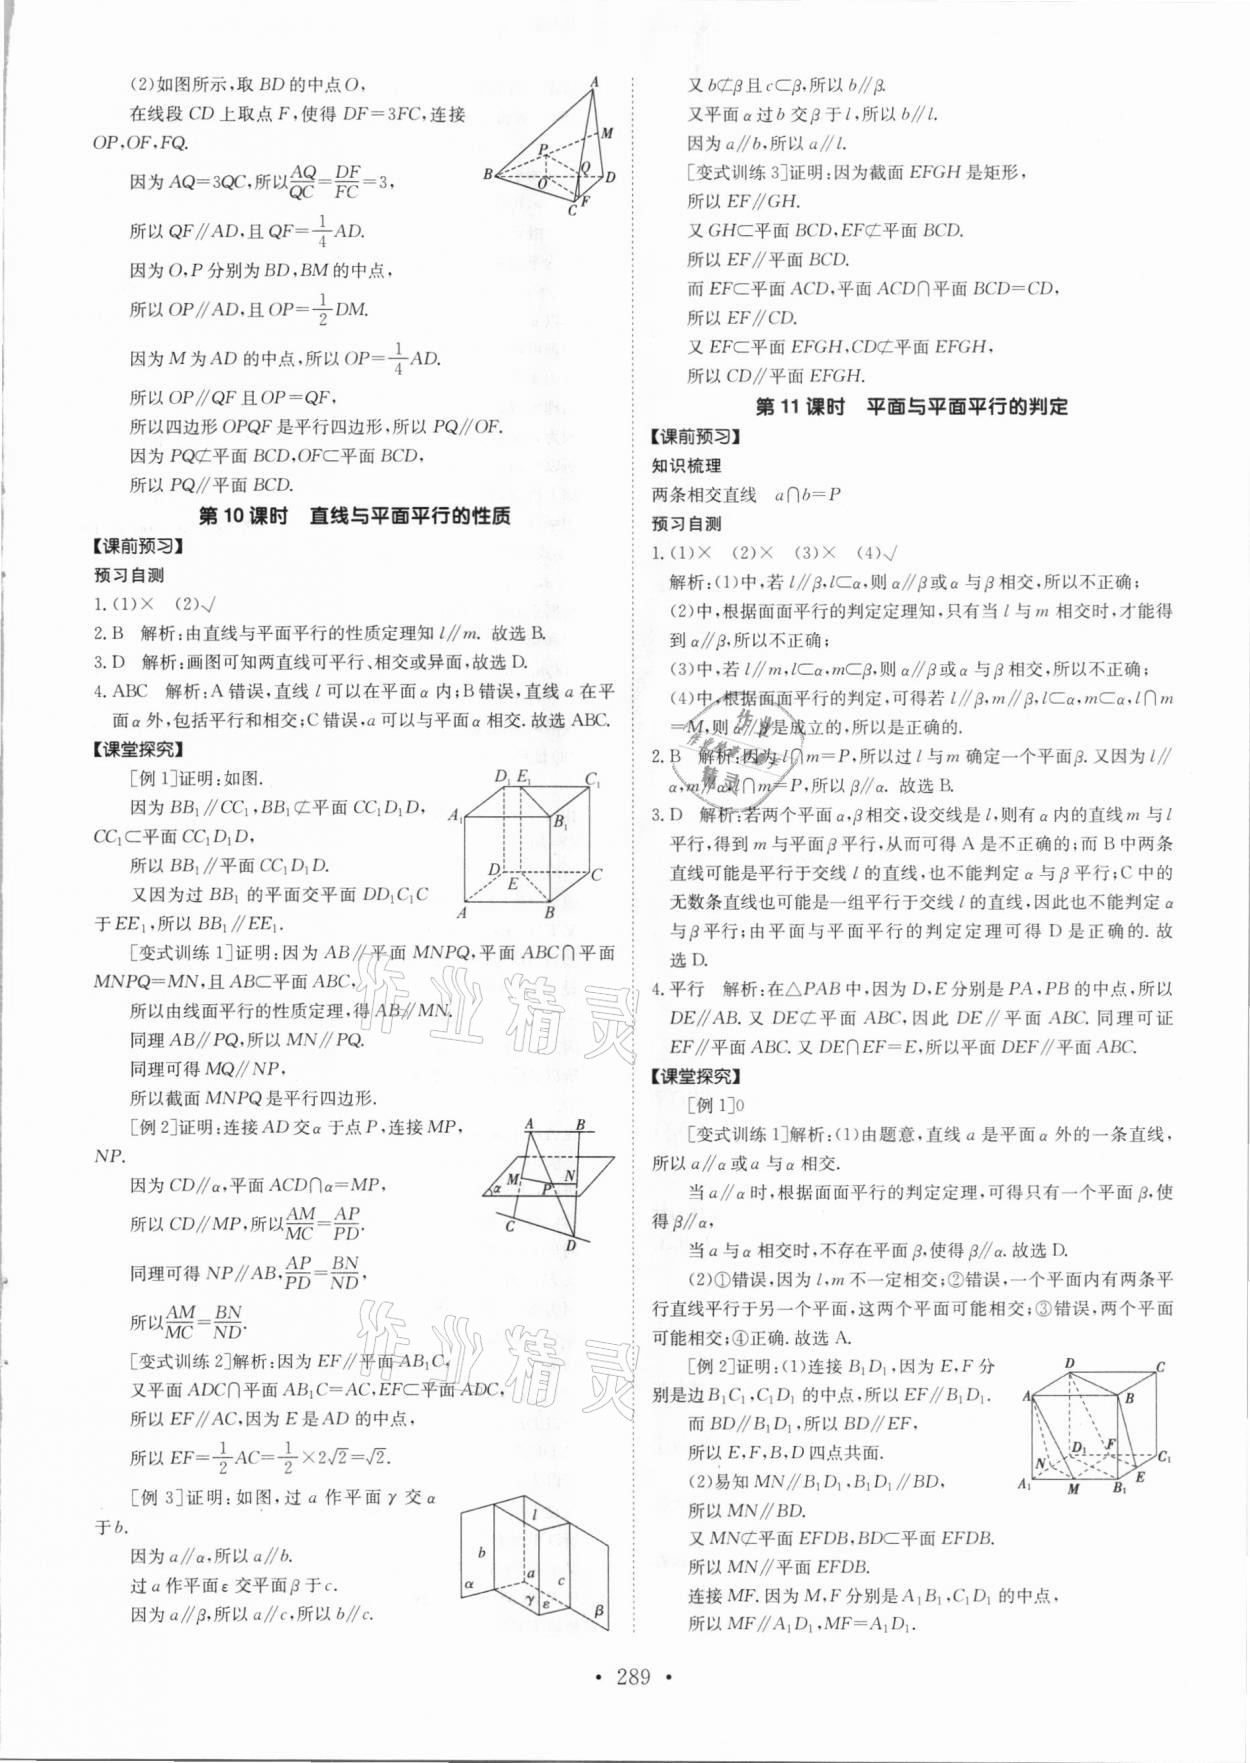 (2)如图所示,取 BD 的中点 O,
在线段 CD 上取点 F,使得 DF=3FC,连接
OP,OF,FQ.
因为 AQ=3QC,所以AQ/QC=DF/FC=3,
所以 QF∥AD,且 QF=1/4AD.
因为 O,P 分别为 BD,BM 的中点,
所以 OP∥AD,且 OP=1/2DM.
因为 M 为 AD 的中点,所以 OP=1/4AD.
所以 OP∥QF 且 OP=QF,
所以四边形 OPQF 是平行四边形,所以 PQ∥OF.
因为 PQ⊄平面 BCD,OF⊂平面 BCD,
所以 PQ∥平面 BCD.
A
M
P
Q
B
O
D
F
C
第 10 课时 直线与平面平行的性质
【课前预习】
预习自测
1.(1)× (2)√
2.B 解析:由直线与平面平行的性质定理知 l∥m. 故选 B.
3.D 解析:画图可知两直线可平行、相交或异面,故选 D.
4.ABC 解析:A 错误,直线 l 可以在平面 α 内;B 错误,直线 a 在平
面 α 外,包括平行和相交;C 错误,a 可以与平面 α 相交.故选 ABC.
【课堂探究】
[例 1]证明:如图.
因为 BB₁∥CC₁,BB₁⊄平面 CC₁D₁D,
CC₁⊂平面 CC₁D₁D,
所以 BB₁∥平面 CC₁D₁D.
又因为过 BB₁ 的平面交平面 DD₁C₁C
于 EE₁,所以 BB₁∥EE₁.
D₁ E₁ C₁
A₁ B₁
D
E C
A B
[变式训练 1]证明:因为 AB∥平面 MNPQ,平面 ABC∩平面
MNPQ=MN,且 AB⊂平面 ABC,
所以由线面平行的性质定理,得 AB∥MN.
同理 AB∥PQ,所以 MN∥PQ.
同理可得 MQ∥NP,
所以截面 MNPQ 是平行四边形.
[例 2]证明:连接 AD 交 α 于点 P,连接 MP,
NP.
因为 CD∥α,平面 ACD∩α=MP,
所以 CD∥MP,所以AM/MC=AP/PD.
同理可得 NP∥AB,AP/PD=BN/ND,
所以AM/MC=BN/ND.
A B
M N
α P
C
D
[变式训练 2]解析:因为 EF∥平面 AB₁C,
又平面 ADC∩平面 AB₁C=AC,EF⊂平面 ADC,
所以 EF∥AC,因为 E 是 AD 的中点,
所以 EF=1/2AC=1/2×2√2=√2.
[例 3]证明:如图,过 a 作平面 γ 交 α
于 b.
因为 a∥α,所以 a∥b.
过 a 作平面 ε 交平面 β 于 c.
因为 a∥β,所以 a∥c,所以 b∥c.
l
b
α a c
γ ε β
又 b⊄β 且 c⊂β,所以 b∥β.
又平面 α 过 b 交 β 于 l,所以 b∥l.
因为 a∥b,所以 a∥l.
[变式训练 3]证明:因为截面 EFGH 是矩形,
所以 EF∥GH.
又 GH⊂平面 BCD,EF⊄平面 BCD.
所以 EF∥平面 BCD.
而 EF⊂平面 ACD,平面 ACD∩平面 BCD=CD,
所以 EF∥CD.
又 EF⊂平面 EFGH,CD⊄平面 EFGH,
所以 CD∥平面 EFGH.
第 11 课时 平面与平面平行的判定
【课前预习】
知识梳理
两条相交直线 a∩b=P
预习自测
1.(1)× (2)× (3)× (4)√
解析:(1)中,若 l∥β,l⊂α,则 α∥β 或 α 与 β 相交,所以不正确;
(2)中,根据面面平行的判定定理知,只有当 l 与 m 相交时,才能得
到 α∥β,所以不正确;
(3)中,若 l∥m,l⊂α,m⊂β,则 α∥β 或 α 与 β 相交,所以不正确;
(4)中,根据面面平行的判定,可得若 l∥β,m∥β,l⊂α,m⊂α,l∩m
=M,则 α∥β 是成立的,所以是正确的.
2.B 解析:因为 l∩m=P,所以过 l 与 m 确定一个平面 β. 又因为 l∥
α,m∥α,l∩m=P,所以 β∥α. 故选 B.
3.D 解析:若两个平面 α,β 相交,设交线是 l,则有 α 内的直线 m 与 l
平行,得到 m 与平面 β 平行,从而可得 A 是不正确的;而 B 中两条
直线可能是平行于交线 l 的直线,也不能判定 α 与 β 平行;C 中的
无数条直线也可能是一组平行于交线 l 的直线,因此也不能判定 α
与 β 平行;由平面与平面平行的判定定理可得 D 是正确的. 故
选 D.
4.平行 解析:在△PAB 中,因为 D,E 分别是 PA,PB 的中点,所以
DE∥AB. 又 DE⊄平面 ABC,因此 DE∥平面 ABC. 同理可证
EF∥平面 ABC. 又 DE∩EF=E,所以平面 DEF∥平面 ABC.
【课堂探究】
[例 1]0
[变式训练 1]解析:(1)由题意,直线 a 是平面 α 外的一条直线,
所以 a∥α 或 a 与 α 相交.
当 a∥α 时,根据面面平行的判定定理,可得只有一个平面 β,使
得 β∥α,
当 a 与 α 相交时,不存在平面 β,使得 β∥α.故选 D.
(2)①错误,因为 l,m 不一定相交;②错误,一个平面内有两条平
行直线平行于另一个平面,这两个平面可能相交;③错误,两个平面
可能相交;④正确.故选 A.
[例 2]证明:(1)连接 B₁D₁,因为 E,F 分
别是边 B₁C₁,C₁D₁ 的中点,所以 EF∥B₁D₁.
而 BD∥B₁D₁,所以 BD∥EF,
所以 E,F,B,D 四点共面.
(2)易知 MN∥B₁D₁,B₁D₁∥BD,
所以 MN∥BD.
又 MN⊄平面 EFDB,BD⊂平面 EFDB.
所以 MN∥平面 EFDB.
连接 MF.因为 M,F 分别是 A₁B₁,C₁D₁ 的中点,
所以 MF∥A₁D₁,MF=A₁D₁.
D C
A B
D₁ F C₁
N E
A₁ M B₁
作业精灵
作业精灵
作业
精灵
• 289 •